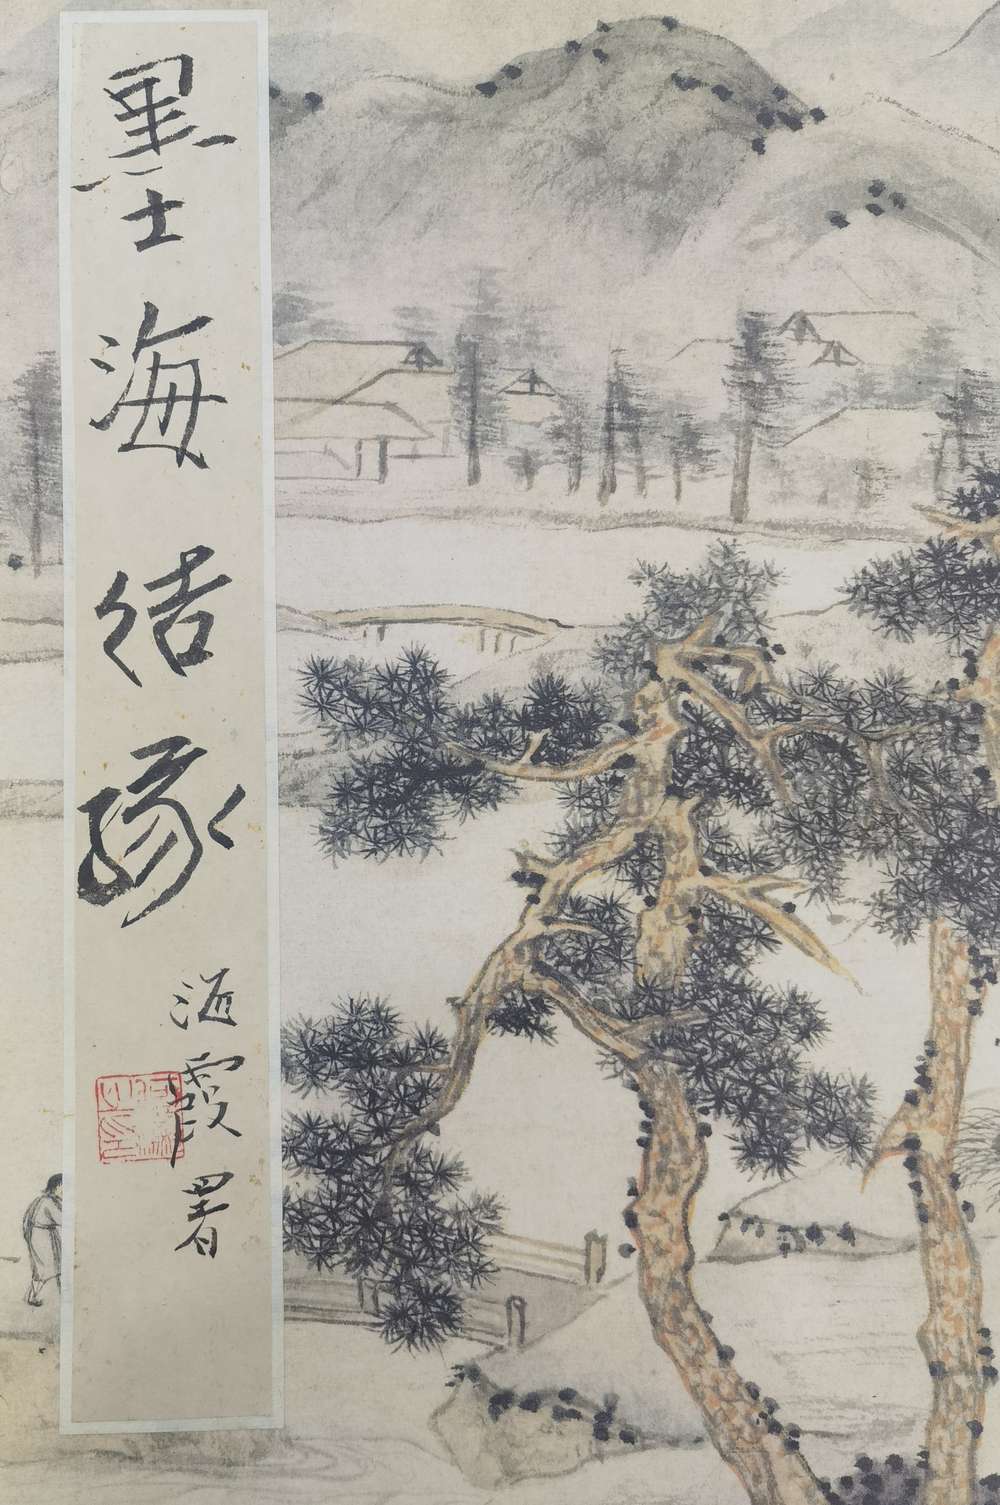 墨海结缘
霞署